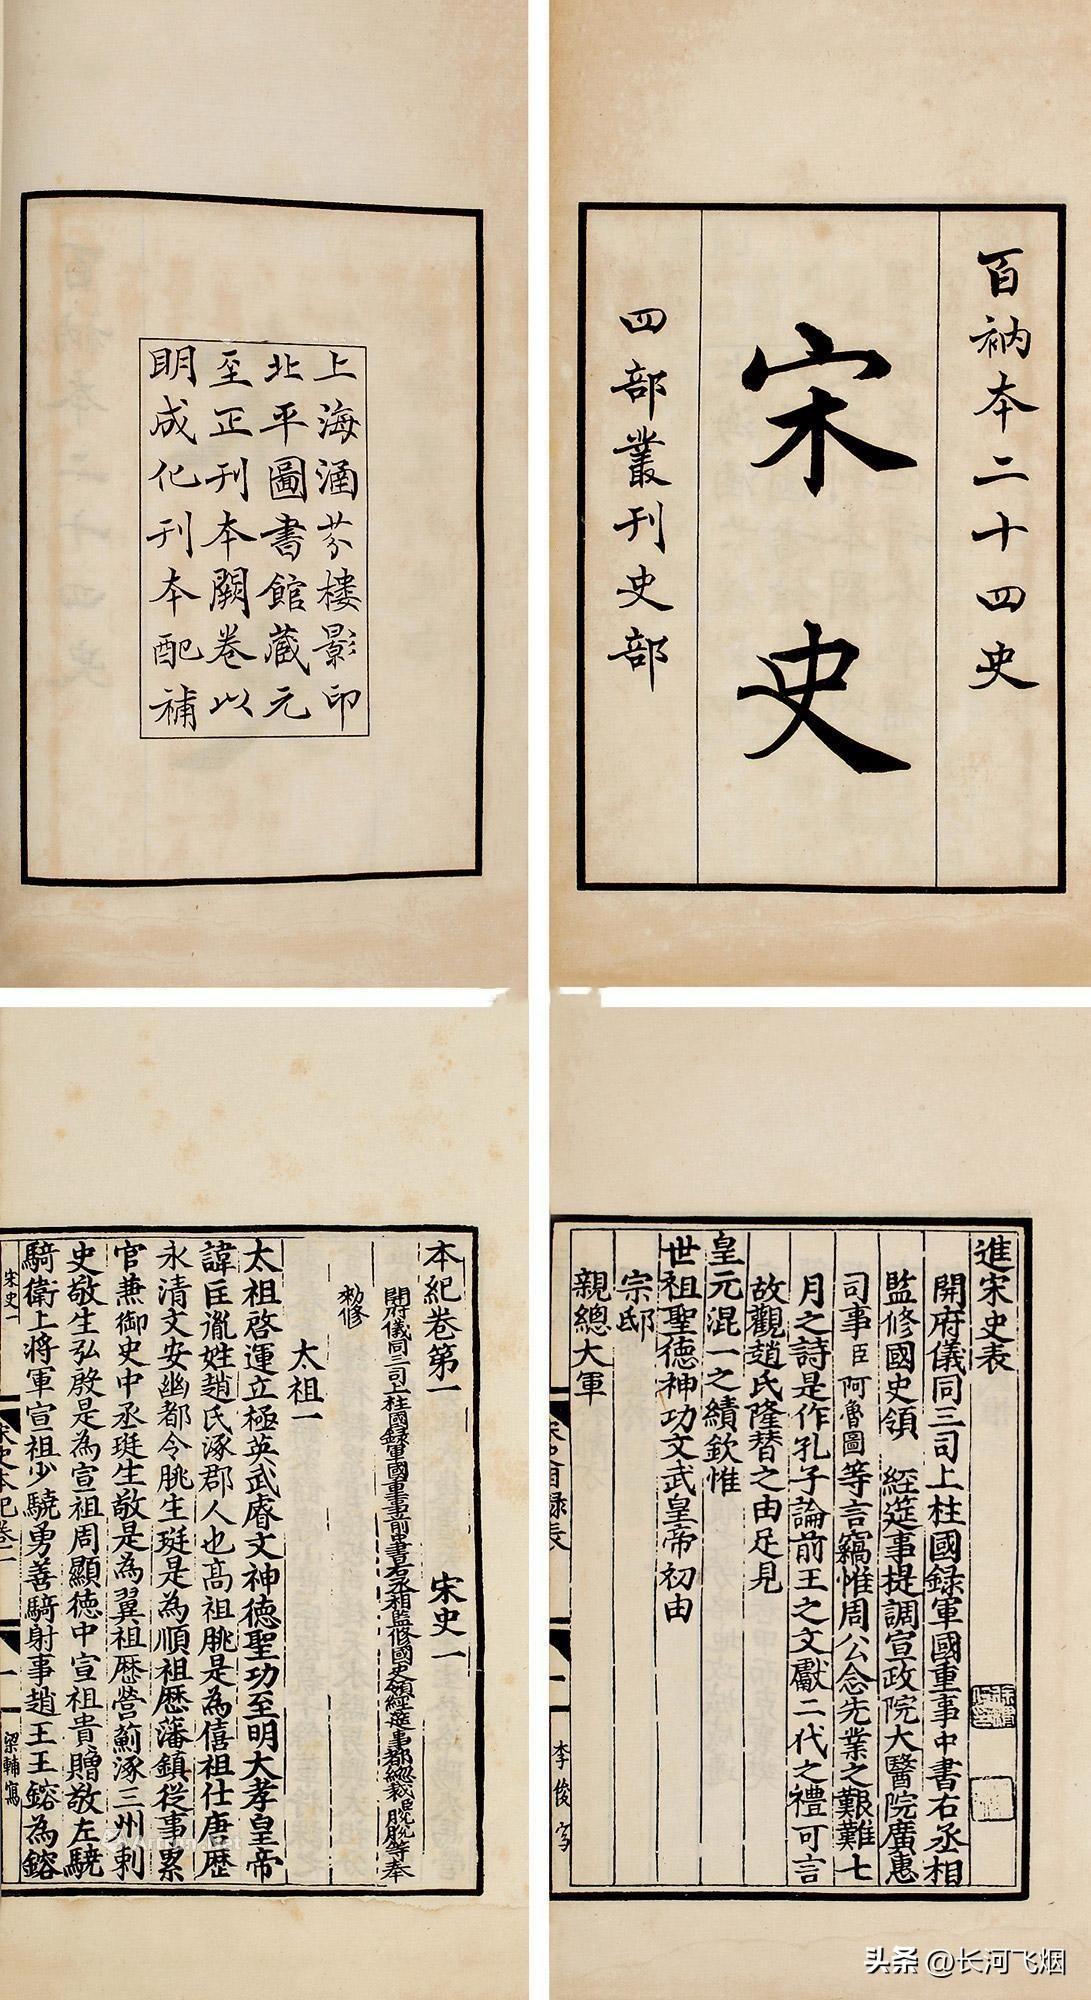 百衲本二十四史
宋史
四部叢刊史部
上海涵芬樓影印
北平圖書館藏元
至正刊本闕卷以
明成化刊本配補
進宋史表
開府儀同三司上柱國錄軍國重事中書右丞相
監修國史領 經筵事提調宣政院大醫院廣惠
司事臣阿魯圖等言竊惟周公念先業之艱難七
月之詩是作孔子論前王之文獻二代之禮可言
故觀趙氏隆替之由足見
皇元混一之績欽惟
世祖聖德神功文武皇帝初由
宗邸
親總大軍
宋史目録表
一
李俊寫
本紀卷第一 宋史一
開府儀同三司上柱國録軍國重事前中書右丞相監修國史領經筵事都總裁臣脫脫等奉
勑修
太祖一
太祖啓運立極英武睿文神德聖功至明大孝皇帝
諱匡胤姓趙氏涿郡人也高祖朓是為僖祖仕唐歷
永清文安幽都令朓生珽是為順祖歷藩鎮從事累
官兼御史中丞珽生敬是為翼祖歷營薊涿三州刺
史敬生弘殷是為宣祖周顯德中宣祖貴贈敬左驍
騎衛上將軍宣祖少驍勇善騎射事趙王王鎔為鎔
宋史一
宋史本紀卷一
一
梁輔寫
头条 @长河飞烟